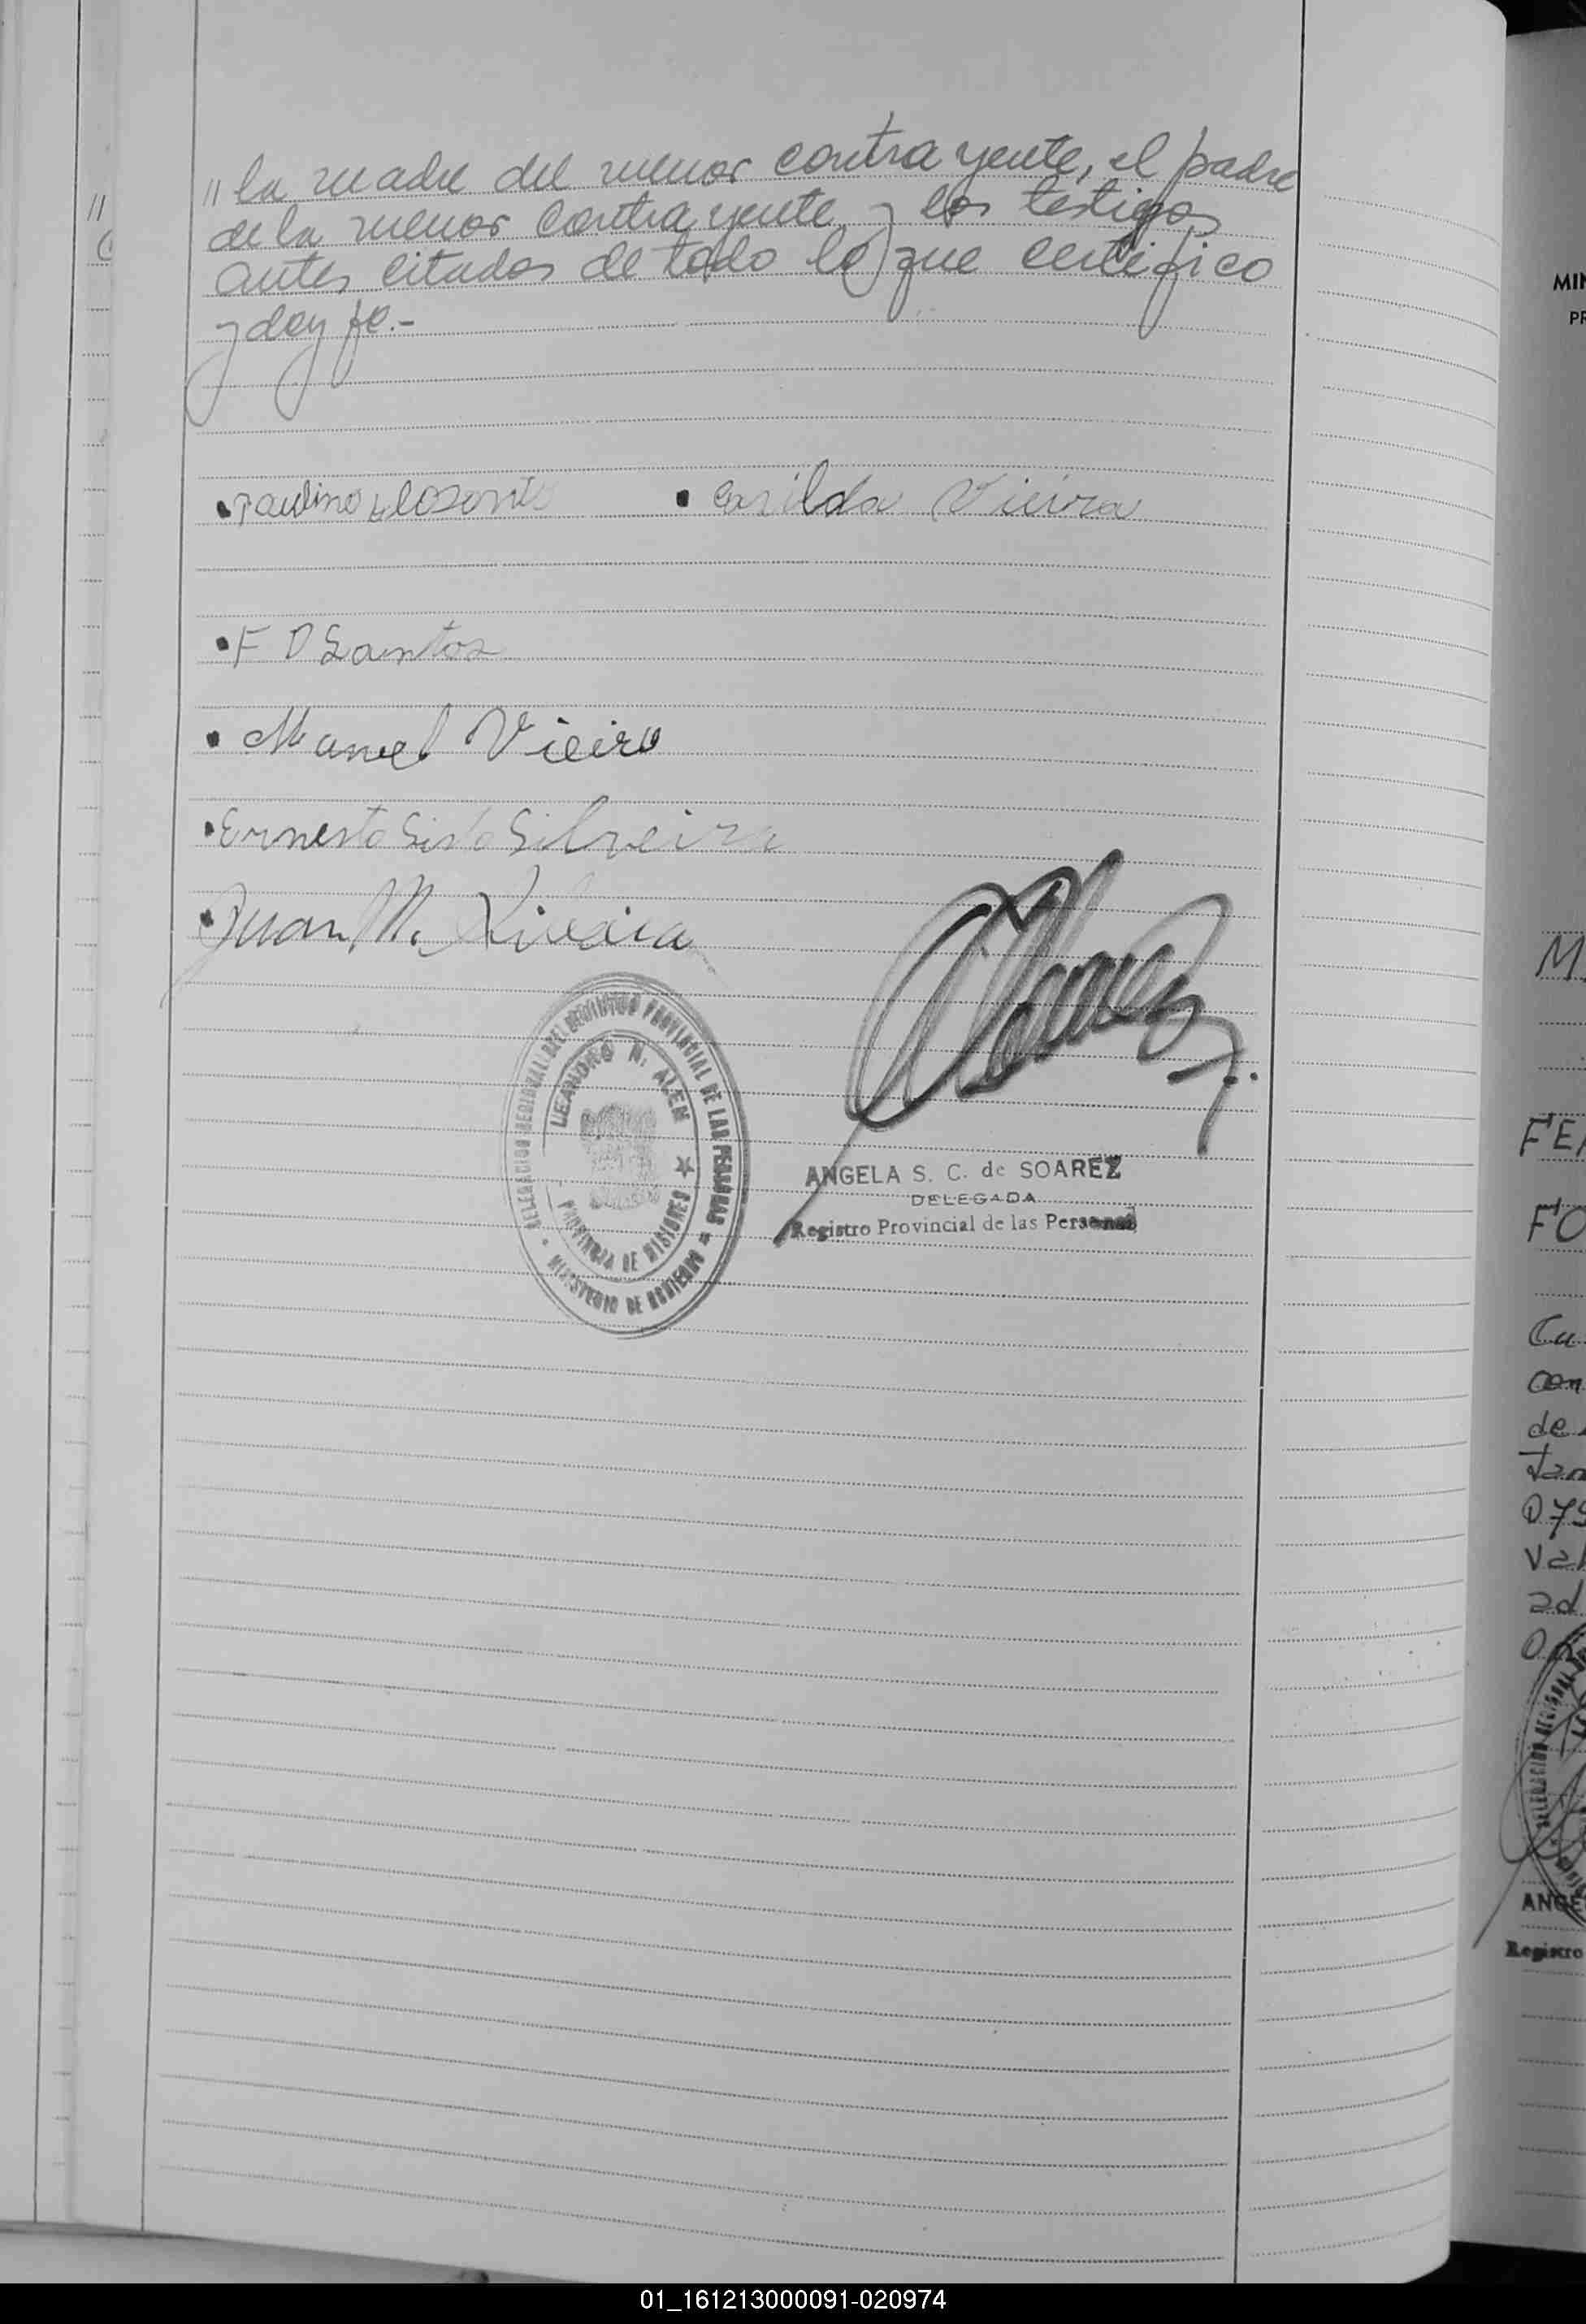 "
"la madre del menor contrayente, el padre
de la menor contrayente y los testigos
antes citados de todo lo que certifico
y doy fe.-
Paulino • Casilda Vieira
• F D Santos
• Manuel Vieira
• Ernesto Sisto Silveira
• Juan M. Silveira
DELEGACION REGIONAL DEL REGISTRO PROVINCIAL DE LAS PERSONAS
LEANDRO N. ALEM
PROVINCIA DE MISIONES
MINISTERIO DE GOBIERNO
ANGELA S. C. de SOAREZ
DELEGADA
Registro Provincial de las Personas
MIN
PR
M.
FE
FO
Cu
con
de
tan
079
Val
ad
DELEGACION REGIONAL
ANGE
Registro
01_161213000091-020974